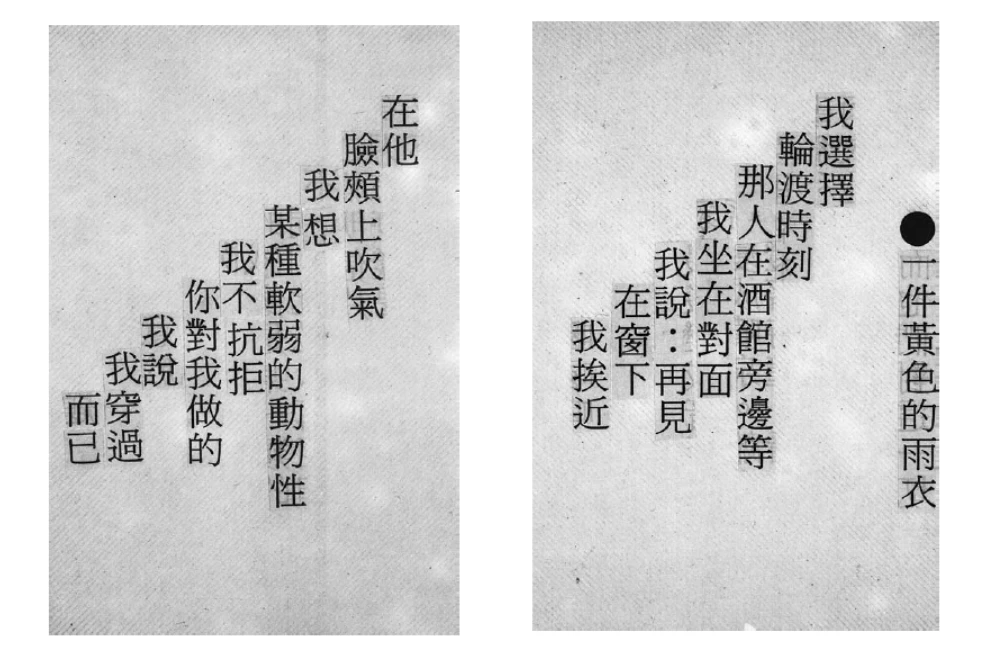 一件黃色的雨衣
我選擇
輪渡時刻
那人在酒館旁邊等
我坐在對面
我說：再見
在窗下
我挨近
在他
臉頰上吹氣
我想
某種軟弱的動物性
我不抗拒
你對我做的
我說
我穿過
而已